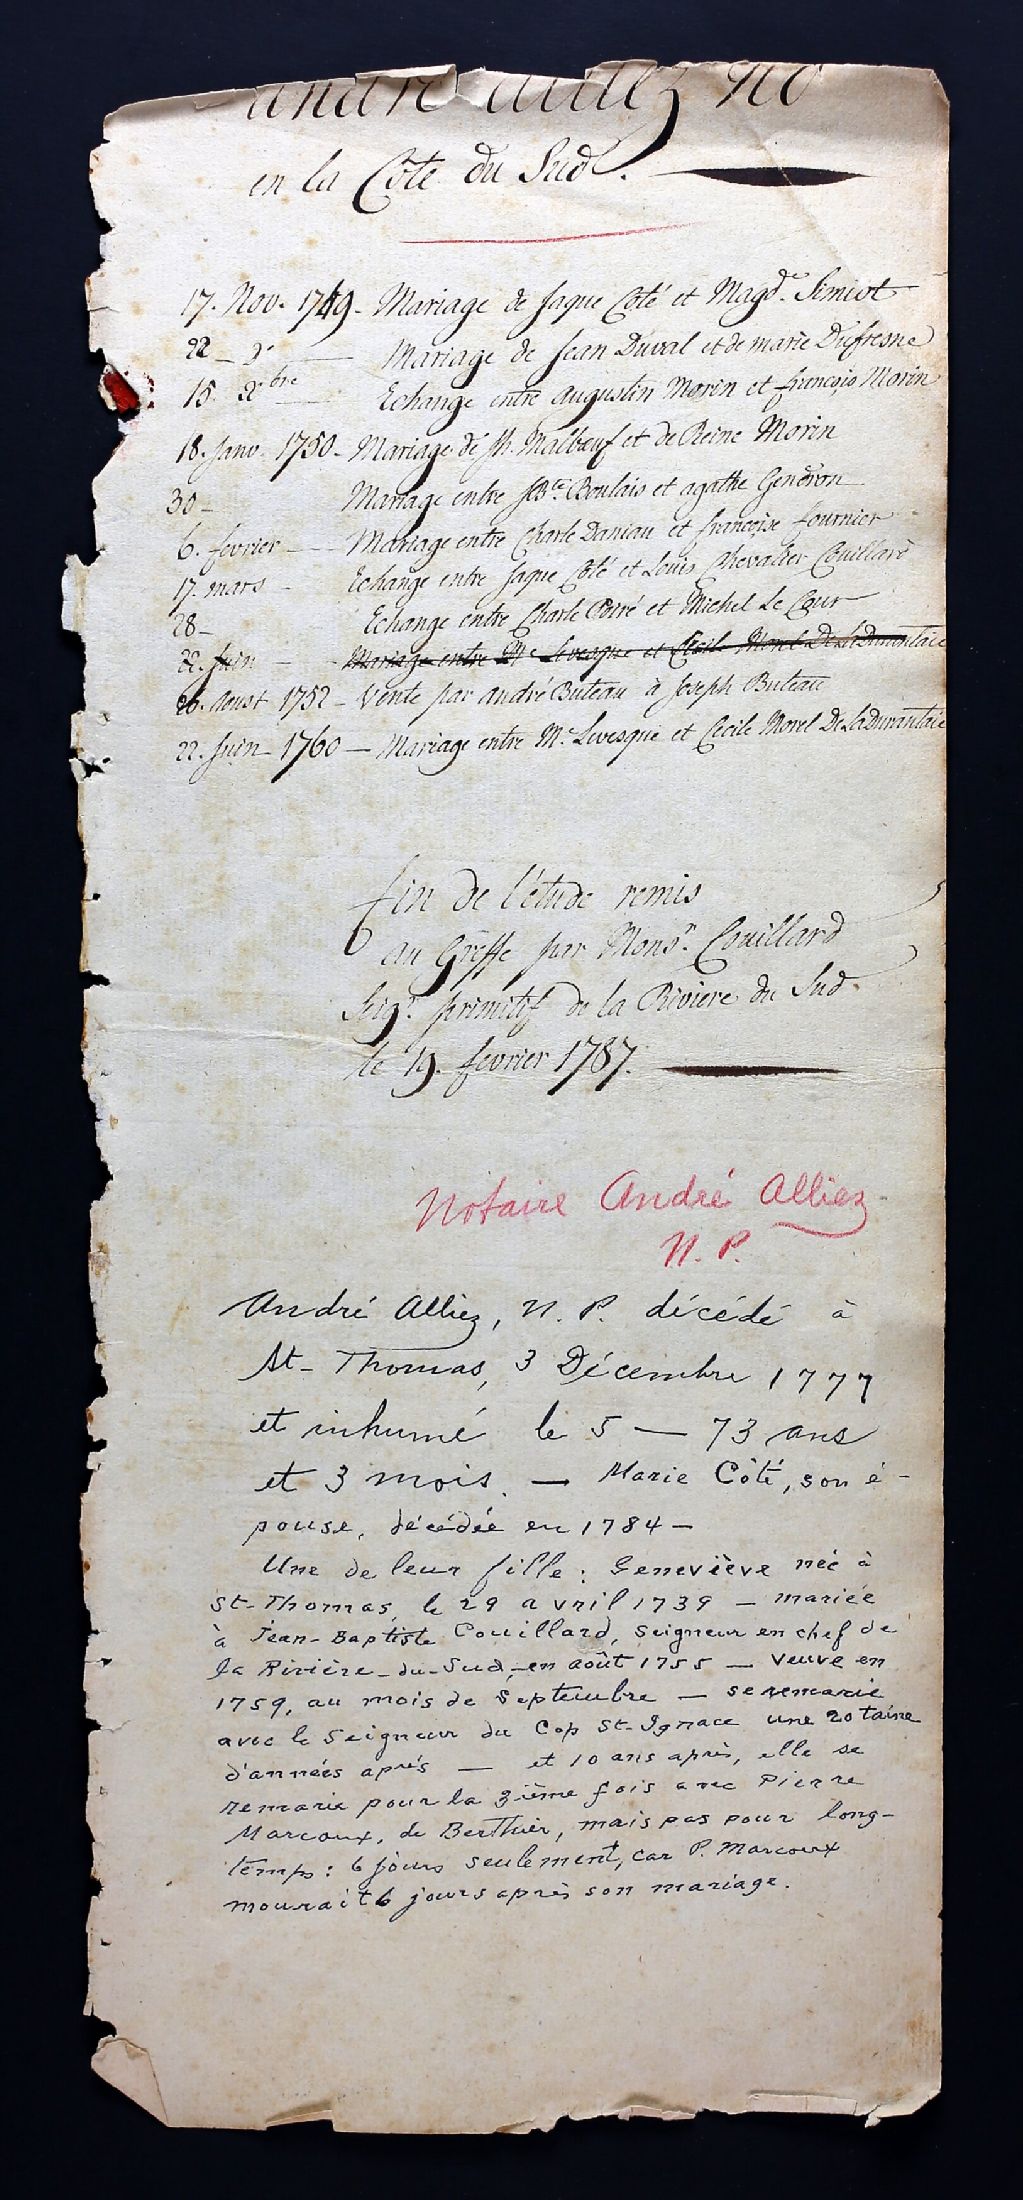 andré alliez no
en la Côte du Sud.
17. Nov. 1749 - Mariage de Jaque Coté et Magd.e Simiot
22 - d° - Mariage de Jean Duval et de marie Dufresne
15. Xbre - Echange entre augustin Morin et françois Morin
18. Janv. 1750 - Mariage de Jh. Malbœuf et de Reine Morin
30 - Mariage entre J Bte. Boulais et agathe Gendron
6. fevrier - Mariage entre Charle Daniau et françoise fournier
17. mars - Echange entre Jaque Coté et Louis Chevalier Couillard
28 - Echange entre Charle Paré et Michel Le Cour
22. Juin - Mariage entre Mr. Levesque et Cecile Morel De Ladurantaie
26. Aoust 1752 - Vente par andré Buteau à Joseph Buteau
22. Juin - 1760 - Mariage entre Mr. Levesque et Cecile Morel De Ladurantaie
fin de l'étude remis
au Greffe par Monsr. Couillard
Seigr. primitif de la Riviere du Sud.
le 19. fevrier 1787.
Notaire André Alliez
N. P.
André Alliez, N. P. décédé à
St-Thomas, 3 Décembre 1777
et inhumé le 5 — 73 ans
et 3 mois. — Marie Côté, son é-
pouse, décédée en 1784 —
Une de leur fille : Geneviève née à
St-Thomas, le 29 avril 1739 — mariée
à Jean-Baptiste Couillard, Seigneur en chef de
la Rivière-du-Sud, en août 1755 — veuve en
1759, au mois de Septembre — se remarie
avec le Seigneur du Cap St-Ignace une 20taine
d'années après — et 10 ans après, elle se
remarie pour la 3ième fois avec Pierre
Marcoux, de Berthier, mais pas pour long-
temps : 6 jours seulement, car P. Marcoux
mourait 6 jours après son mariage.